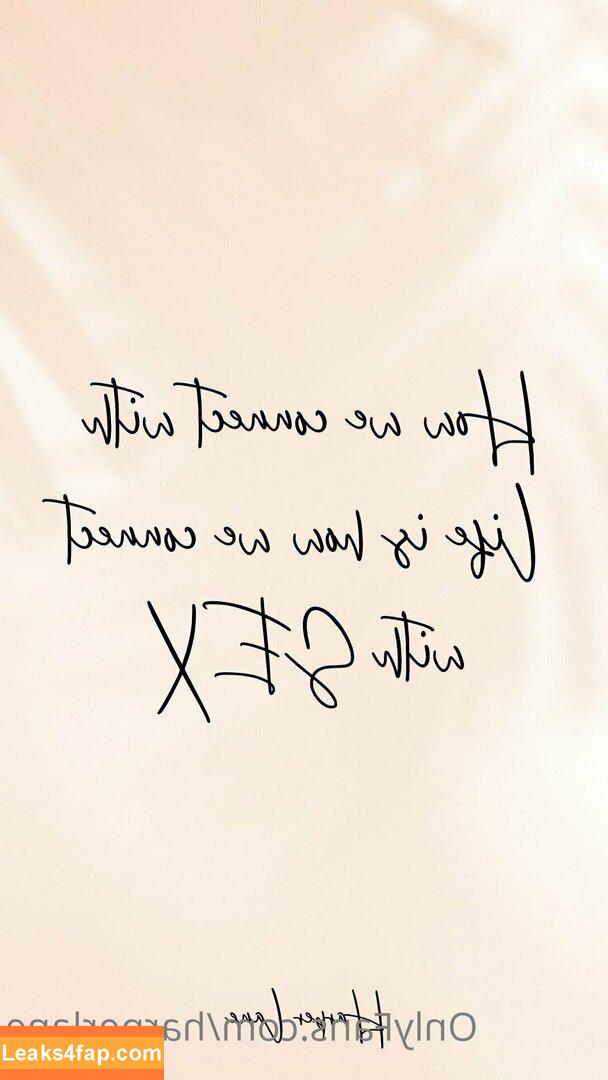 How we connect with
life is how we connect
with SEX
Harper Lane
OnlyFans.com/harperlane
Leaks4fap.com